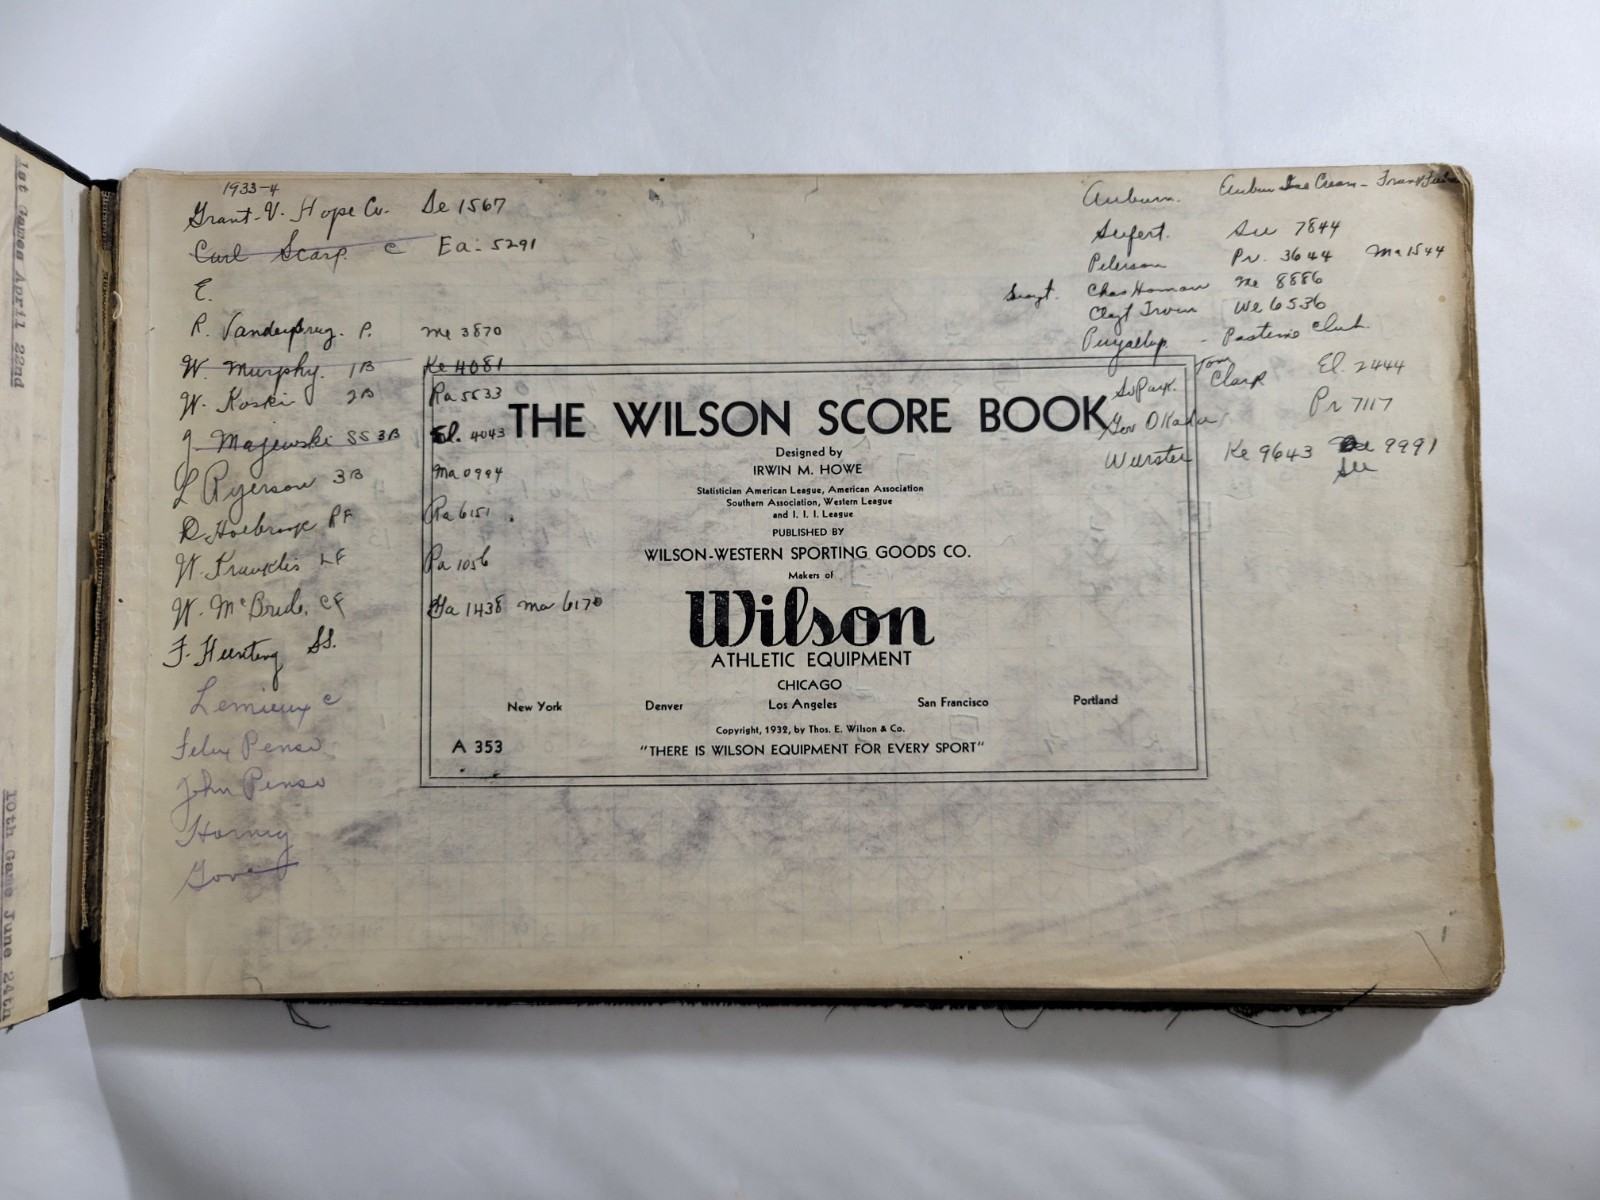 1st Games April 22nd
10th Game June 24th
1933-4
Grant-V. Hope Co. Se 1567
Carl Scarp. C Ea: 5291
E.
R. Vanderbrug. P. Me 3870
W. Murphy. 1B Ke 4081
W. Koski 2B Ra 5533
J. Majewski SS 3B El. 4043
L Ryerson 3B Ma 0994
D. Holbrook RF Ra 6151
W. Franklis LF Pa 1056
W. McBride. CF Ga 1438 Ma 6170
F. Hunting SS.
Lemieux C
Felix Penso
John Penso
Hornig
Gove
Auburn. Auburn Ice Cream -
Seifert. Su 7844
Peterson Pr. 3644 Ma 1544
Chas Homan Me 8886
Clayt Irwin We 6536
Puyallup - Pastime Club
So Park. Tom Clark El. 2444
Geo Pr 7117
Wurster Ke 9643 9991
Su
THE WILSON SCORE BOOK
Designed by
IRWIN M. HOWE
Statistician American League, American Association
Southern Association, Western League
and I. I. I. League
PUBLISHED BY
WILSON-WESTERN SPORTING GOODS CO.
Makers of
Wilson
ATHLETIC EQUIPMENT
CHICAGO
New York Denver Los Angeles San Francisco Portland
Copyright, 1932, by Thos. E. Wilson & Co.
A 353 "THERE IS WILSON EQUIPMENT FOR EVERY SPORT"